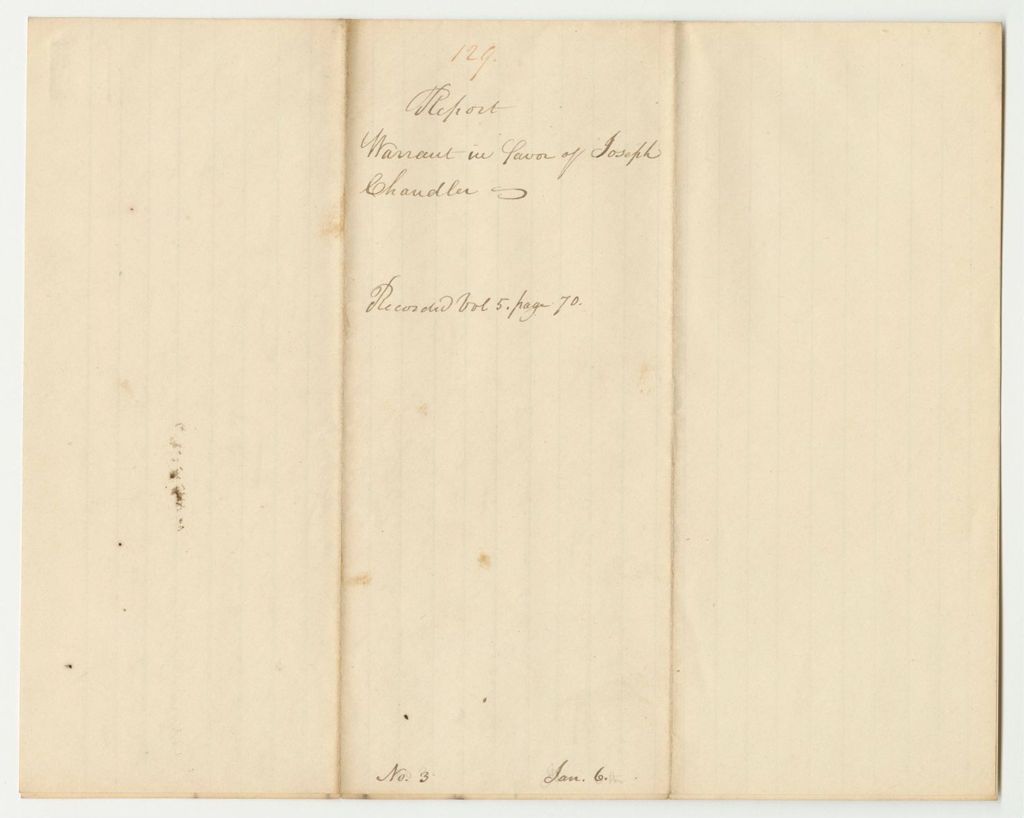 129.
Report
Warrant in favor of Joseph
Chandler
Recorded Vol 5. page 70.
No. 3 Jan. 6.